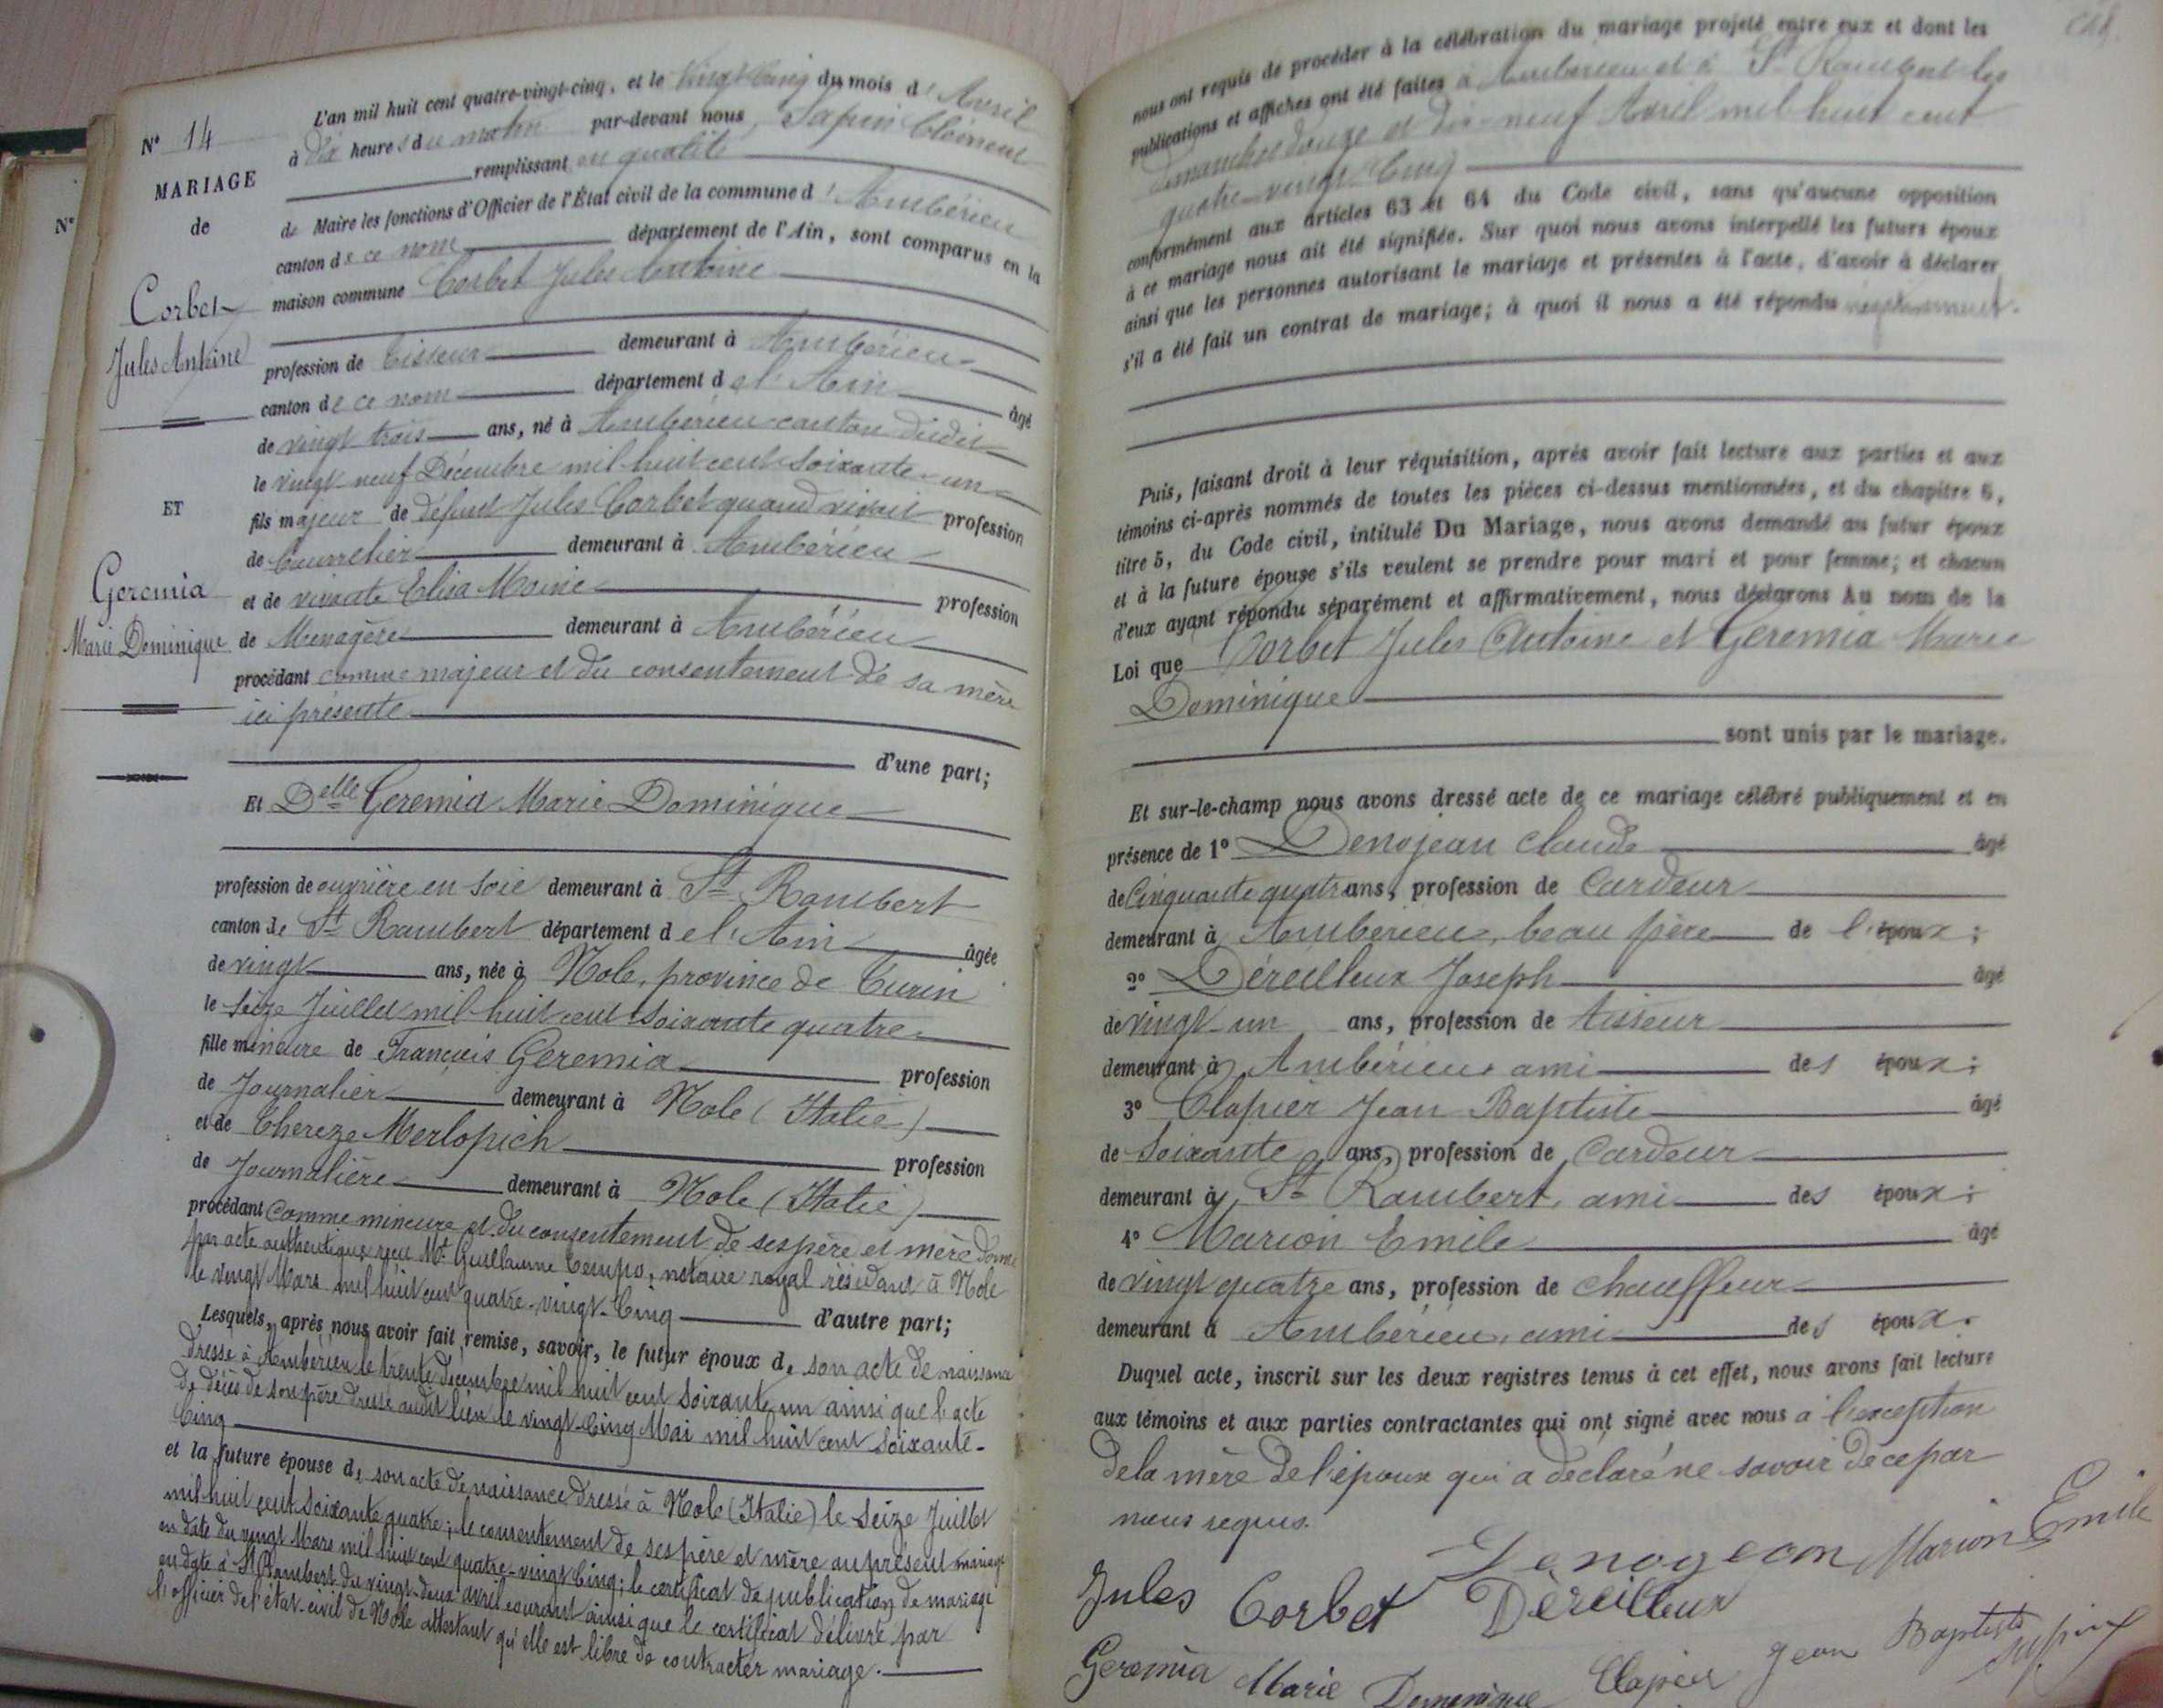 N° 14
MARIAGE
de
Corbet
Jules Antoine
ET
Geremia
Marie Dominique
L'an mil huit cent quatre-vingt-cinq, et le vingt Cinq du mois d' Avril
à dix heures du matin par-devant nous, Sapin Clément
remplissant en qualité
de Maire les fonctions d'Officier de l'État civil de la commune d' Ambérieu
canton de ce nom département de l'Ain, sont comparus en la
maison commune Corbet Jules Antoine
profession de Tisseur demeurant à Ambérieu
canton de ce nom département de l'Ain âgé
de vingt trois ans, né à Ambérieu canton dudit
le vingt neuf Décembre mil huit cent soixante un
fils majeur de défunt Jules Corbet quand vivait profession
de demeurant à Ambérieu
et de vivante Elisa Moine profession
de Ménagère demeurant à Ambérieu
procédant comme majeur et du consentement de sa mère
ici présente
d'une part;
Et Delle Geremia Marie Dominique
profession de ouvrière en soie demeurant à St Rambert
canton de St Rambert département de l'Ain âgée
de vingt ans, née à Nole, province de Turin
le seize Juillet mil huit cent soixante quatre
fille mineure de François Geremia profession
de Journalier demeurant à Nole (Italie)
et de Thereze Merlopich profession
de Journalière demeurant à Nole (Italie)
procédant comme mineure et du consentement de ses père et mère donné
par acte authentique reçu Mt Guillaume Tempo, notaire royal résidant à Nole
le vingt Mars mil huit cent quatre-vingt-Cinq d'autre part;
Lesquels, après nous avoir fait remise, savoir, le futur époux de son acte de naissance
dressé à Ambérieu le trente décembre mil huit cent soixante un ainsi que l'acte
de décès de son père dressé audit lieu le vingt-Cinq Mai mil huit cent soixante-
Cinq
et la future épouse de son acte de naissance dressé à Nole (Italie) le seize Juillet
mil huit cent soixante quatre; le consentement de ses père et mère au présent mariage
en date du vingt Mars mil huit cent quatre-vingt Cinq; le certificat de publication de mariage
en date à St Rambert du vingt-deux avril courant ainsi que le certificat délivré par
l'officier de l'état-civil de Nole attestant qu'elle est libre de contracter mariage.
nous ont requis de procéder à la célébration du mariage projeté entre eux et dont les
publications et affiches ont été faites à Ambérieu et à St Rambert les
dimanches douze et dix-neuf Avril mil huit cent
quatre-vingt Cinq
conformément aux articles 63 et 64 du Code civil, sans qu'aucune opposition
à ce mariage nous ait été signifiée. Sur quoi nous avons interpellé les futurs époux
ainsi que les personnes autorisant le mariage et présentes à l'acte, d'avoir à déclarer
s'il a été fait un contrat de mariage; à quoi il nous a été répondu négativement.
Puis, faisant droit à leur réquisition, après avoir fait lecture aux parties et aux
témoins ci-après nommés de toutes les pièces ci-dessus mentionnées, et du chapitre 6,
titre 5, du Code civil, intitulé Du Mariage, nous avons demandé au futur époux
et à la future épouse s'ils veulent se prendre pour mari et pour femme; et chacun
d'eux ayant répondu séparément et affirmativement, nous déclarons Au nom de la
Loi que Corbet Jules Antoine et Geremia Marie
Dominique
sont unis par le mariage.
Et sur-le-champ nous avons dressé acte de ce mariage célébré publiquement et en
présence de 1° Denojean Claude âgé
de Cinquante quatre ans, profession de Cardeur
demeurant à Ambérieu, beau père de l'époux;
2° Déreilleux Joseph âgé
de vingt-un ans, profession de tisseur
demeurant à Ambérieu, ami des époux;
3° Clapier Jean Baptiste âgé
de soixante ans, profession de Cardeur
demeurant à St Rambert, ami des époux;
4° Marion Emile âgé
de vingt quatre ans, profession de chauffeur
demeurant à Ambérieu, ami des époux.
Duquel acte, inscrit sur les deux registres tenus à cet effet, nous avons fait lecture
aux témoins et aux parties contractantes qui ont signé avec nous à l'exception
de la mère de l'époux qui a déclaré ne savoir de ce par
nous requis.
Denogeon Marion Emile
Jules Corbet Déreilleux
Geremia Marie Dominique Clapier Jean Baptiste Sapin